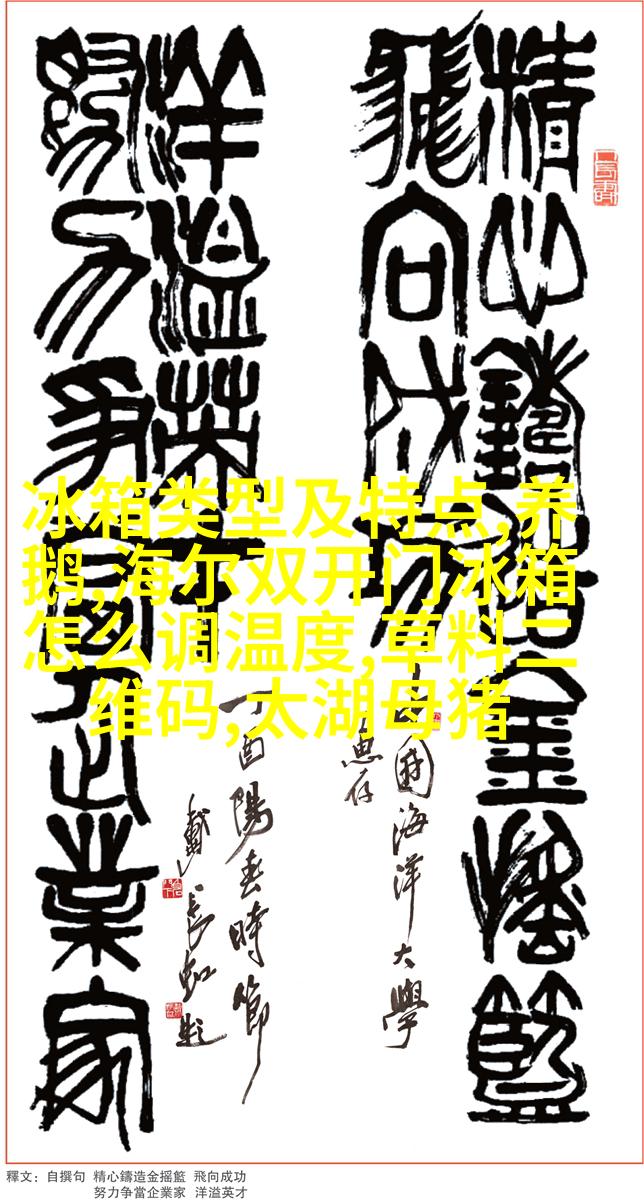 精心鑄造金搖籃
飛向成功
中國海洋大學
惠存
洋溢英才
努力爭當企業家
丁酉陽春時節
戴長虹題
冰箱类型及特点,养
鹅,海尔双开门冰箱
怎么调温度,草料二
维码,太湖母猪
釋文：自撰句 精心鑄造金摇籃 飛向成功
努力争當企業家 洋溢英才